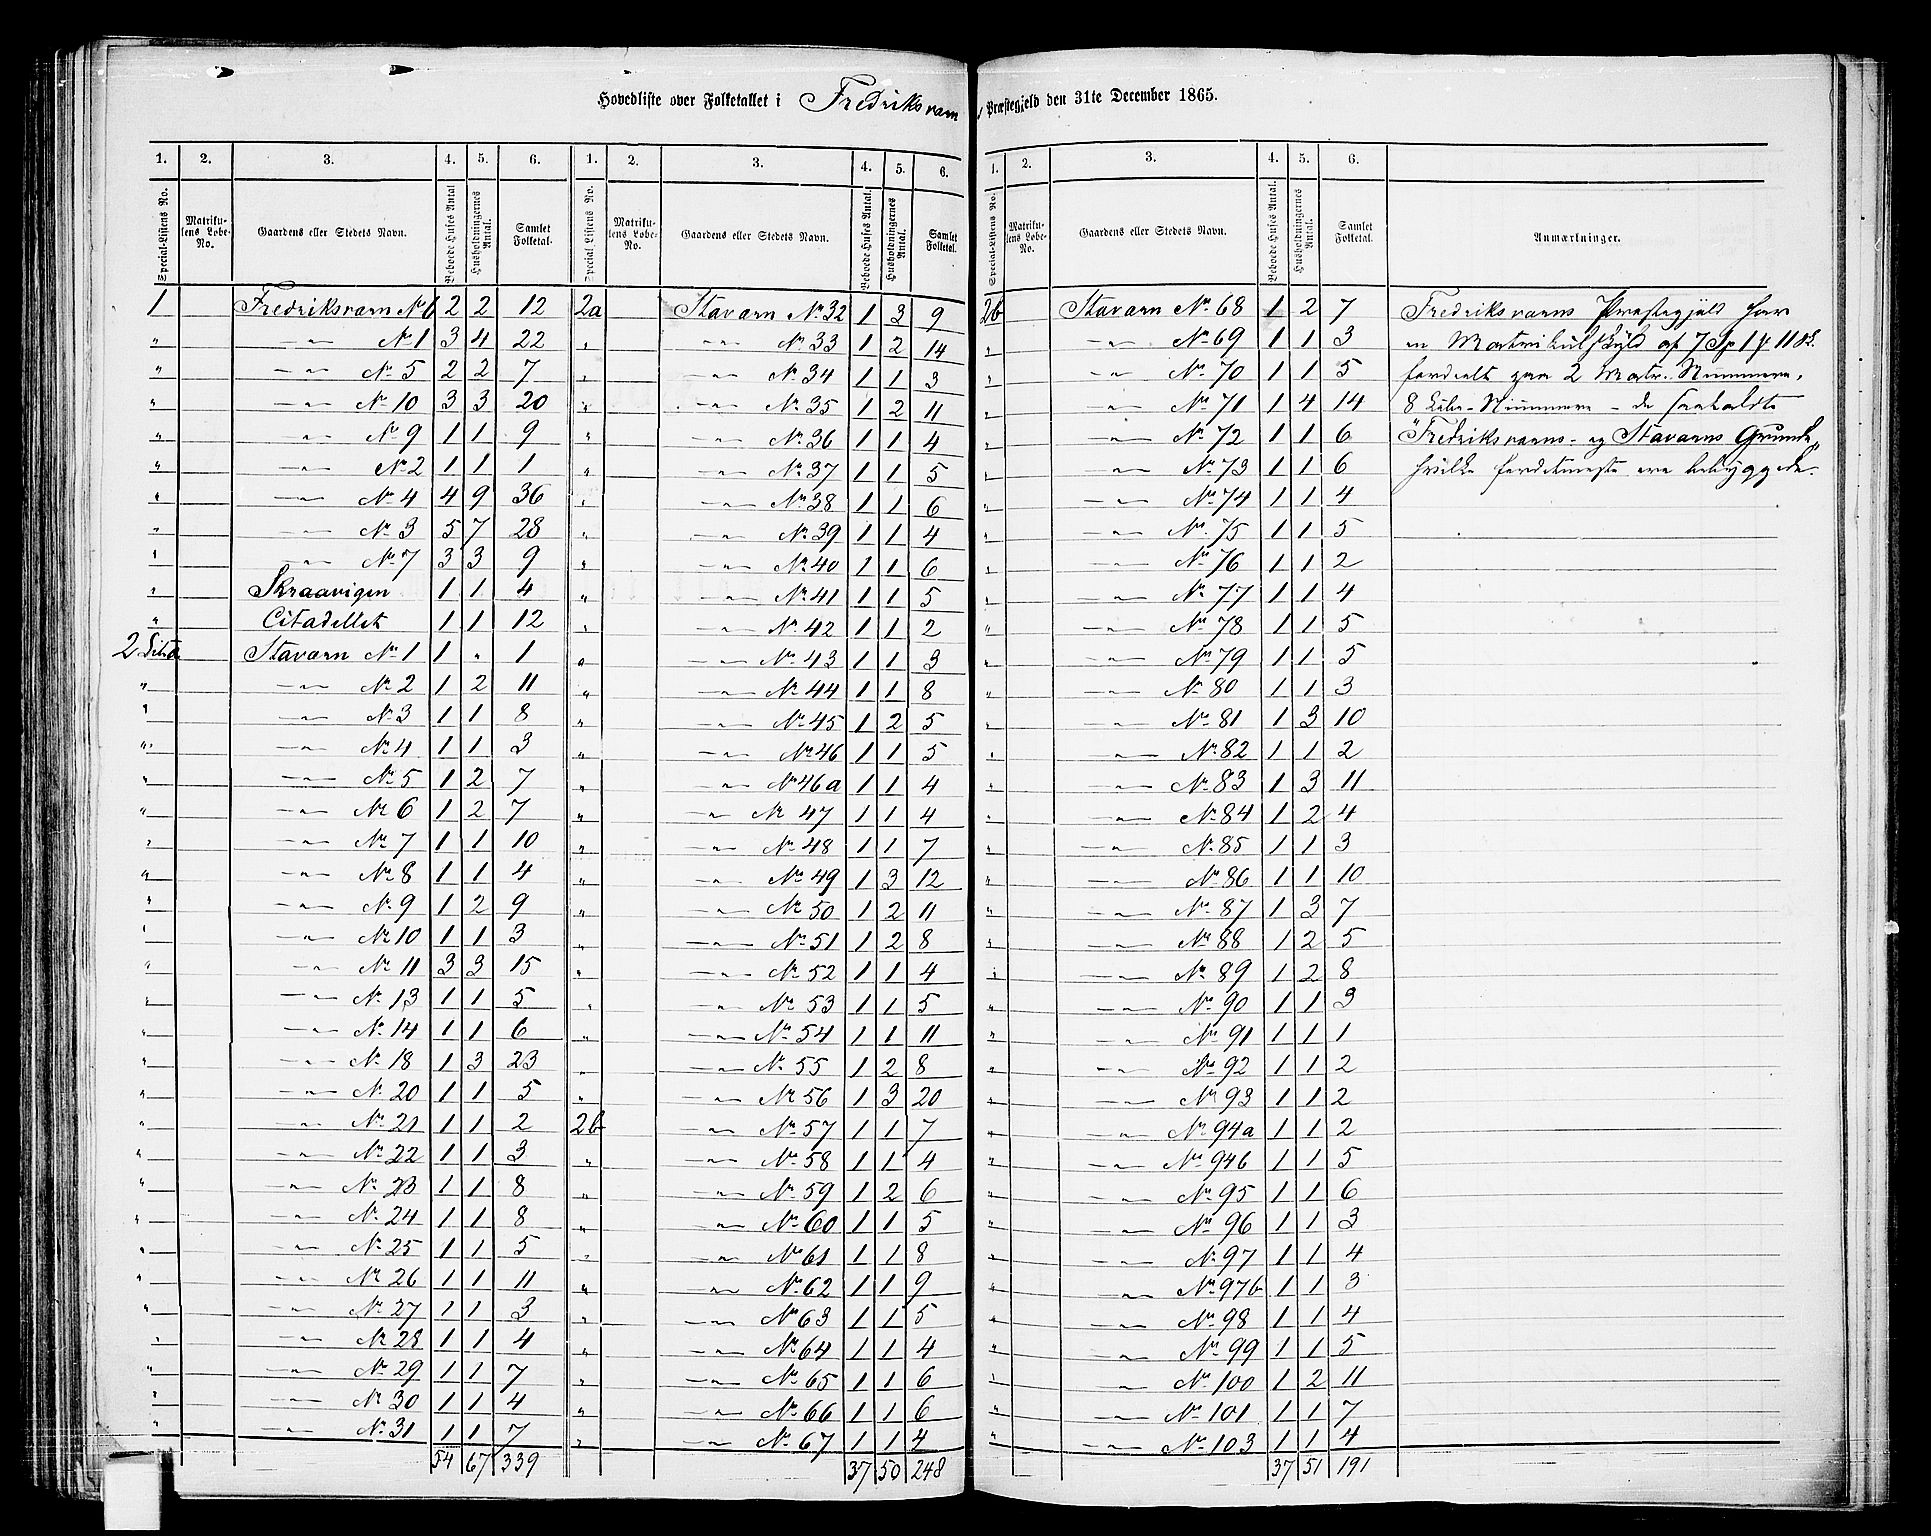 Hovedliste over Folketallet i Fredriksværn Præstegjeld den 31te December 1865.
1. 2. 3. 4. 5. 6.
Special-Listens No. Matrikulens Løbe-No. Gaardens eller Stedets Navn. Beboede Huses Antal Husholdningernes Antal. Samlet Folketal.
1 Fredriksværn No 6 2 2 12
" —"— No 1 3 4 22
" —"— No 5 2 2 7
" —"— No 10 3 3 20
" —"— No 9 1 1 9
" —"— No 2 1 1 1
" —"— No 4 4 9 36
" —"— No 3 5 7 28
" —"— No 7 3 3 9
" Skraavigen 1 1 4
" Citadellet 1 1 12
2 Lit a Staværn No 1 1 " 1
" —"— No 2 1 2 11
" —"— No 3 1 1 8
" —"— No 4 1 1 3
" —"— No 5 1 2 7
" —"— No 6 1 2 7
" —"— No 7 1 1 10
" —"— No 8 1 1 4
" —"— No 9 1 2 9
" —"— No 10 1 1 3
" —"— No 11 3 3 15
" —"— No 13 1 1 5
" —"— No 14 1 1 6
" —"— No 18 1 3 23
" —"— No 20 1 1 5
" —"— No 21 1 1 2
" —"— No 22 1 1 3
" —"— No 23 1 1 8
" —"— No 24 1 1 8
" —"— No 25 1 1 5
" —"— No 26 1 1 11
" —"— No 27 1 1 3
" —"— No 28 1 1 4
" —"— No 29 1 1 7
" —"— No 30 1 1 4
" —"— No 31 1 1 7
54 67 339
1. 2. 3. 4. 5. 6.
Special-Listens No. Matrikulens Løbe-No. Gaardens eller Stedets Navn. Beboede Huses Antal. Husholdningernes Antal. Samlet Folketal.
2a Staværn No 32 1 3 9
" —"— No 33 1 2 14
" —"— No 34 1 1 3
" —"— No 35 1 2 11
" —"— No 36 1 1 4
" —"— No 37 1 1 5
" —"— No 38 1 1 6
" —"— No 39 1 1 4
" —"— No 40 1 1 6
" —"— No 41 1 1 5
" —"— No 42 1 1 2
" —"— No 43 1 1 3
" —"— No 44 1 1 8
" —"— No 45 1 2 5
" —"— No 46 1 1 5
" —"— No 46a 1 1 4
" —"— No 47 1 1 4
" —"— No 48 1 1 7
" —"— No 49 1 3 12
" —"— No 50 1 2 11
" —"— No 51 1 2 8
" —"— No 52 1 1 4
" —"— No 53 1 1 5
" —"— No 54 1 1 11
" —"— No 55 1 2 8
" —"— No 56 1 3 20
2b —"— No 57 1 1 7
" —"— No 58 1 1 4
" —"— No 59 1 2 6
" —"— No 60 1 1 5
" —"— No 61 1 1 8
" —"— No 62 1 1 9
" —"— No 63 1 1 5
" —"— No 64 1 1 4
" —"— No 65 1 1 6
" —"— No 66 1 1 6
" —"— No 67 1 1 4
37 50 248
1. 2. 3. 4. 5. 6.
Special-Listens No. Matrikulens Løbe-No. Gaardens eller Stedets Navn. Beboede Huses Antal. Husholdningernes Antal. Samlet Folketal. Anmærkninger.
2b Staværn No 68 1 2 7
" —"— No 69 1 1 3
" —"— No 70 1 1 5
" —"— No 71 1 4 14
" —"— No 72 1 1 6
" —"— No 73 1 1 6
" —"— No 74 1 1 4
" —"— No 75 1 1 5
" —"— No 76 1 1 2
" —"— No 77 1 1 4
" —"— No 78 1 1 5
" —"— No 79 1 1 5
" —"— No 80 1 1 3
" —"— No 81 1 3 10
" —"— No 82 1 1 2
" —"— No 83 1 3 11
" —"— No 84 1 2 4
" —"— No 85 1 1 3
" —"— No 86 1 1 10
" —"— No 87 1 3 7
" —"— No 88 1 2 5
" —"— No 89 1 2 8
" —"— No 90 1 1 3
" —"— No 91 1 1 1
" —"— No 92 1 1 2
" —"— No 93 1 1 2
" —"— No 94a 1 1 2
" —"— No 94b 1 1 5
" —"— No 95 1 1 6
" —"— No 96 1 1 3
" —"— No 97 1 1 4
" —"— No 97b 1 1 3
" —"— No 98 1 1 4
" —"— No 99 1 1 5
" —"— No 100 1 2 11
" —"— No 101 1 1 7
" —"— No 103 1 1 4
37 51 191
Fredriksværns Præstegjeld har
en Matrikulskyld af 7 Sp 1 ₰ 11 sk.
fordeelt paa 2 Matr. Nummere,
8 Løbe-Nummere – de saakaldte
"Fredriksværns- og Staværns Grunde",
hvilke fordetmeste ere bebyggede.